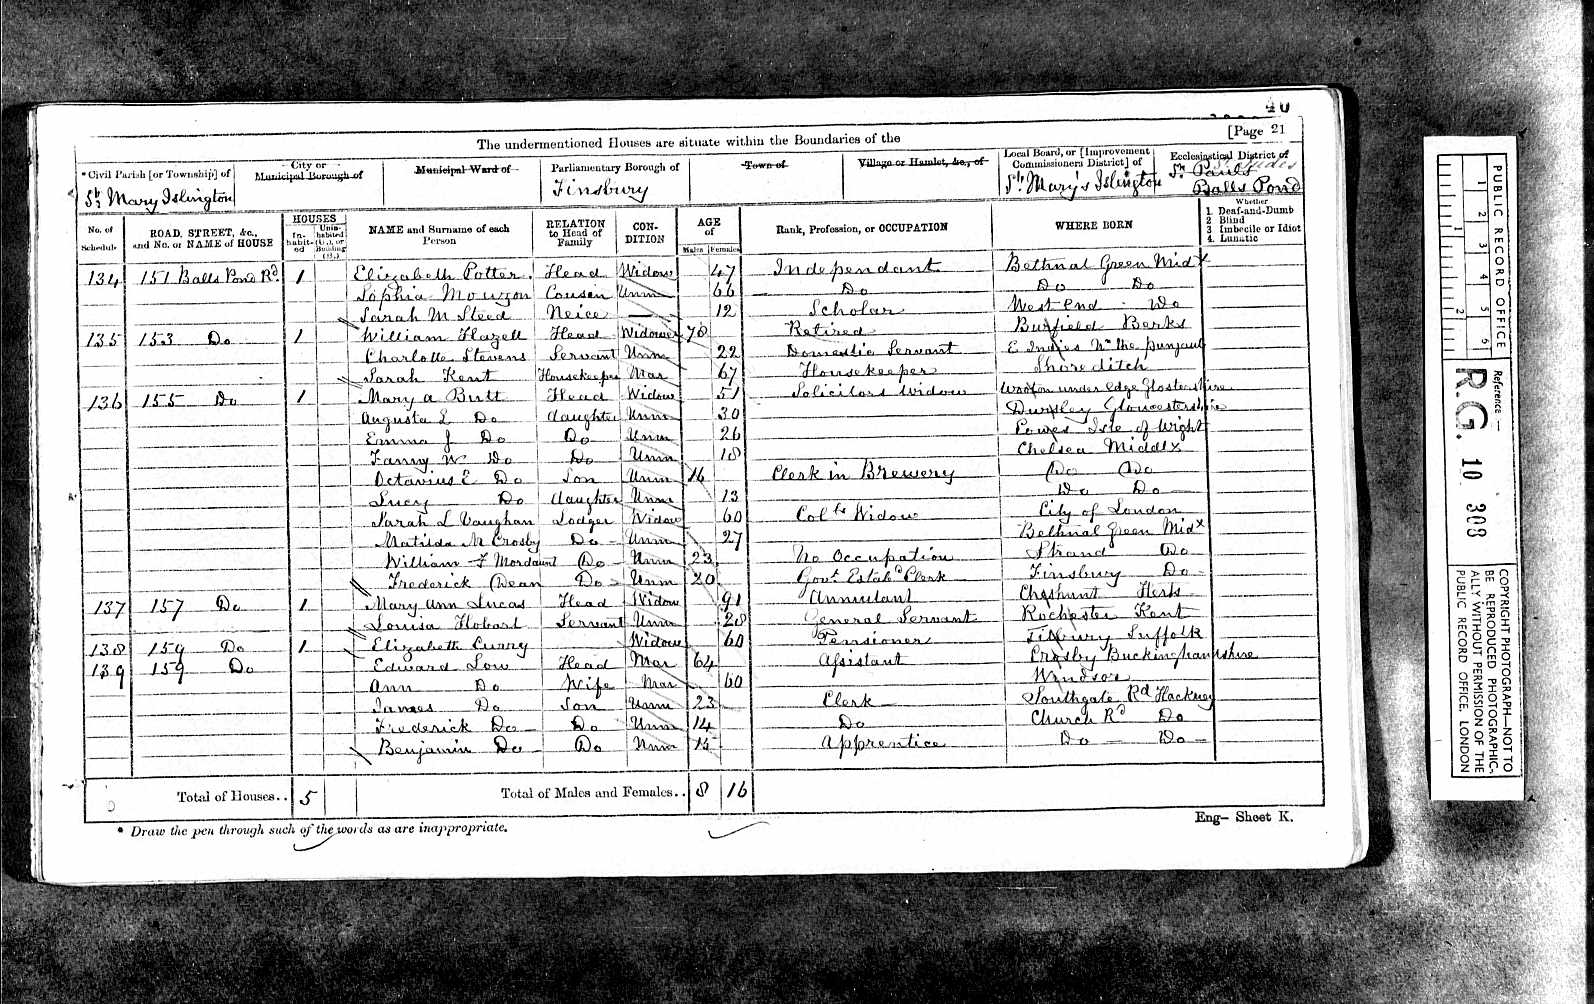 40
[Page 21
The undermentioned Houses are situate within the Boundaries of the
* Civil Parish [or Township] of
St Mary Islington
City or
Municipal Borough of
Municipal Ward of
Parliamentary Borough of
Finsbury
Town of
Village or Hamlet, &c., of
Local Board, or [Improvement
Commissioners District] of
St Mary's Islington
Ecclesiastical District of
St Pauls
Balls Pond
No. of
Schedule
ROAD, STREET, &c.,
and No. or NAME of HOUSE
HOUSES
In-
habit-
ed
Unin-
habited
(U.), or
Building
(B.)
NAME and Surname of each
Person
RELATION
to Head of
Family
CON-
DITION
AGE
of
Males
Females
Rank, Profession, or OCCUPATION
WHERE BORN
Whether
1. Deaf-and-Dumb
2 Blind
3 Imbecile or Idiot
4. Lunatic
134 151 Balls Pond Rd 1 Elizabeth Potter Head Widow 47 Independant Bethnal Green Midx
Sophia Mowzon Cousin Unm 66 Do Do Do
Sarah M Steed Neice 12 Scholar West End Do
135 153 Do 1 William Hazell Head Widower 78 Retired Burfield Berks
Charlotte Stevens Servant Unm 22 Domestic Servant E Indies Nr the punjaub
Sarah Kent Housekeeper Mar 67 Housekeeper Shoreditch
136 155 Do 1 Mary a Butt Head Widow 51 Solicitors Widow Wootton under edge Glostershire
Augusta L Do daughter Unm 30 Dursley Gloucestershire
Emma J Do Do Unm 26 Cowes Isle of Wight
Fanny W Do Do Unm 18 Chelsea Middlx
Octavius E Do Son Unm 16 Clerk in Brewery Do Do
Lucy Do daughter Unm 13 Do Do
Sarah L Vaughan Lodger Widow 60 Widow City of London
Matilda M Crosby Do Unm 27 Bethnal Green Midx
William F Mordaunt Do Unm 23 No Occupation Strand Do
Frederick Dean Do Unm 20 Govt Estabt Clerk Finsbury Do
137 157 Do 1 Mary Ann Lucas Head Widow 91 Annuitant Cheshunt Herts
Louisa Hobart Servant Unm 28 General Servant Rochester Kent
138 159 Do 1 Elizabeth Curry Widow 60 Pensioner Suffolk
139 159 Do Edward Low Head Mar 64 Assistant Buckinghamshire
Ann Do Wife Mar 60 Windsor
James Do Son Unm 23 Clerk Southgate Rd Hackney
Frederick Do Do Unm 14 Do Church Rd Do
Benjamin Do Do Unm 15 Apprentice Do Do
Total of Houses.. 5
Total of Males and Females.. 8 16
* Draw the pen through such of the words as are inappropriate.
Eng- Sheet K.
PUBLIC RECORD OFFICE
1 2 3 4 5 6
1 2
Reference:-
R.G. 10 308
COPYRIGHT PHOTOGRAPH—NOT TO
BE REPRODUCED PHOTOGRAPHIC-
ALLY WITHOUT PERMISSION OF THE
PUBLIC RECORD OFFICE, LONDON